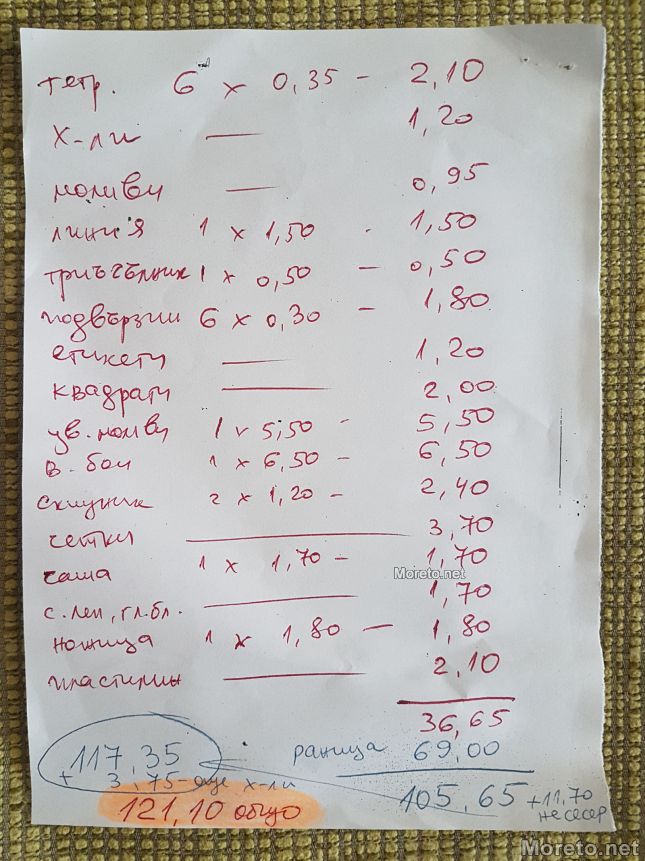 тетр. 6 x 0,35 - 2,10
х-ли — 1,20
моливи — 0,95
линия 1 x 1,50 - 1,50
триъгълник 1 x 0,50 - 0,50
подвързии 6 x 0,30 - 1,80
етикети — 1,20
квадрати — 2,00
цв. моливи 1 x 5,50 - 5,50
в. бои 1 x 6,50 - 6,50
скицник 2 x 1,20 - 2,40
четки — 3,70
чаша 1 x 1,70 - 1,70
Moreto.net
с. леп, гл. бл. — 1,70
ножица 1 x 1,80 - 1,80
пластилин — 2,10
36,65
раница 69,00
105,65 + 11,70 несесер
117,35
+ 3,75 - още х-ли
121,10 общо
Moreto.net